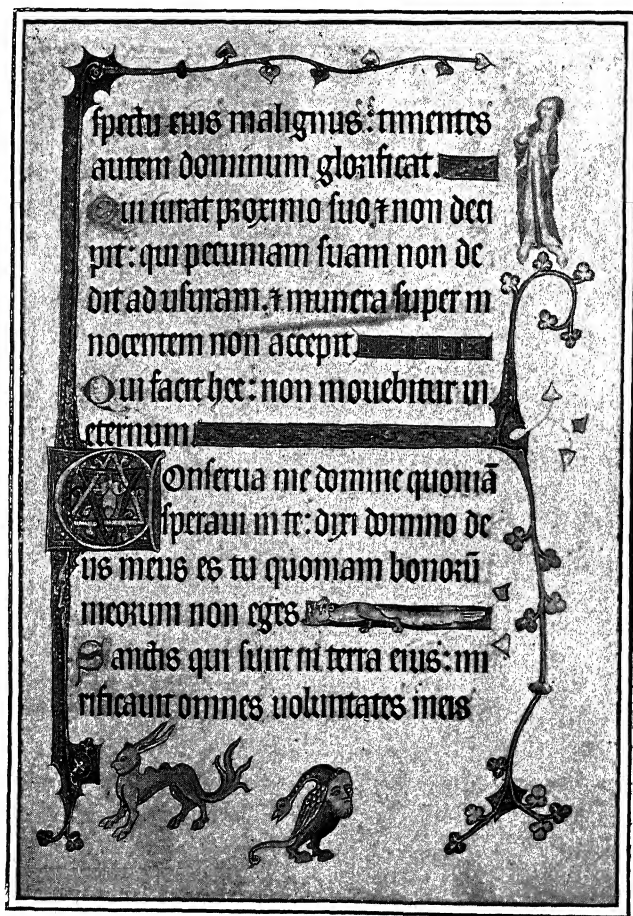 spectu eius malignus: timentes
autem dominum glorificat.
Qui iurat proximo suo ⁊ non deci
pit: qui pecuniam suam non de
dit ad usuram. ⁊ munera super in
nocentem non accepit.
Qui facit hec: non mouebitur in
eternum.
Conserua me domine quoniã
speraui in te: dixi domino de
us meus es tu quoniam bonorũ
meorum non eges.
Sanctis qui sunt in terra eius: mi
rificauit omnes uoluntates meas